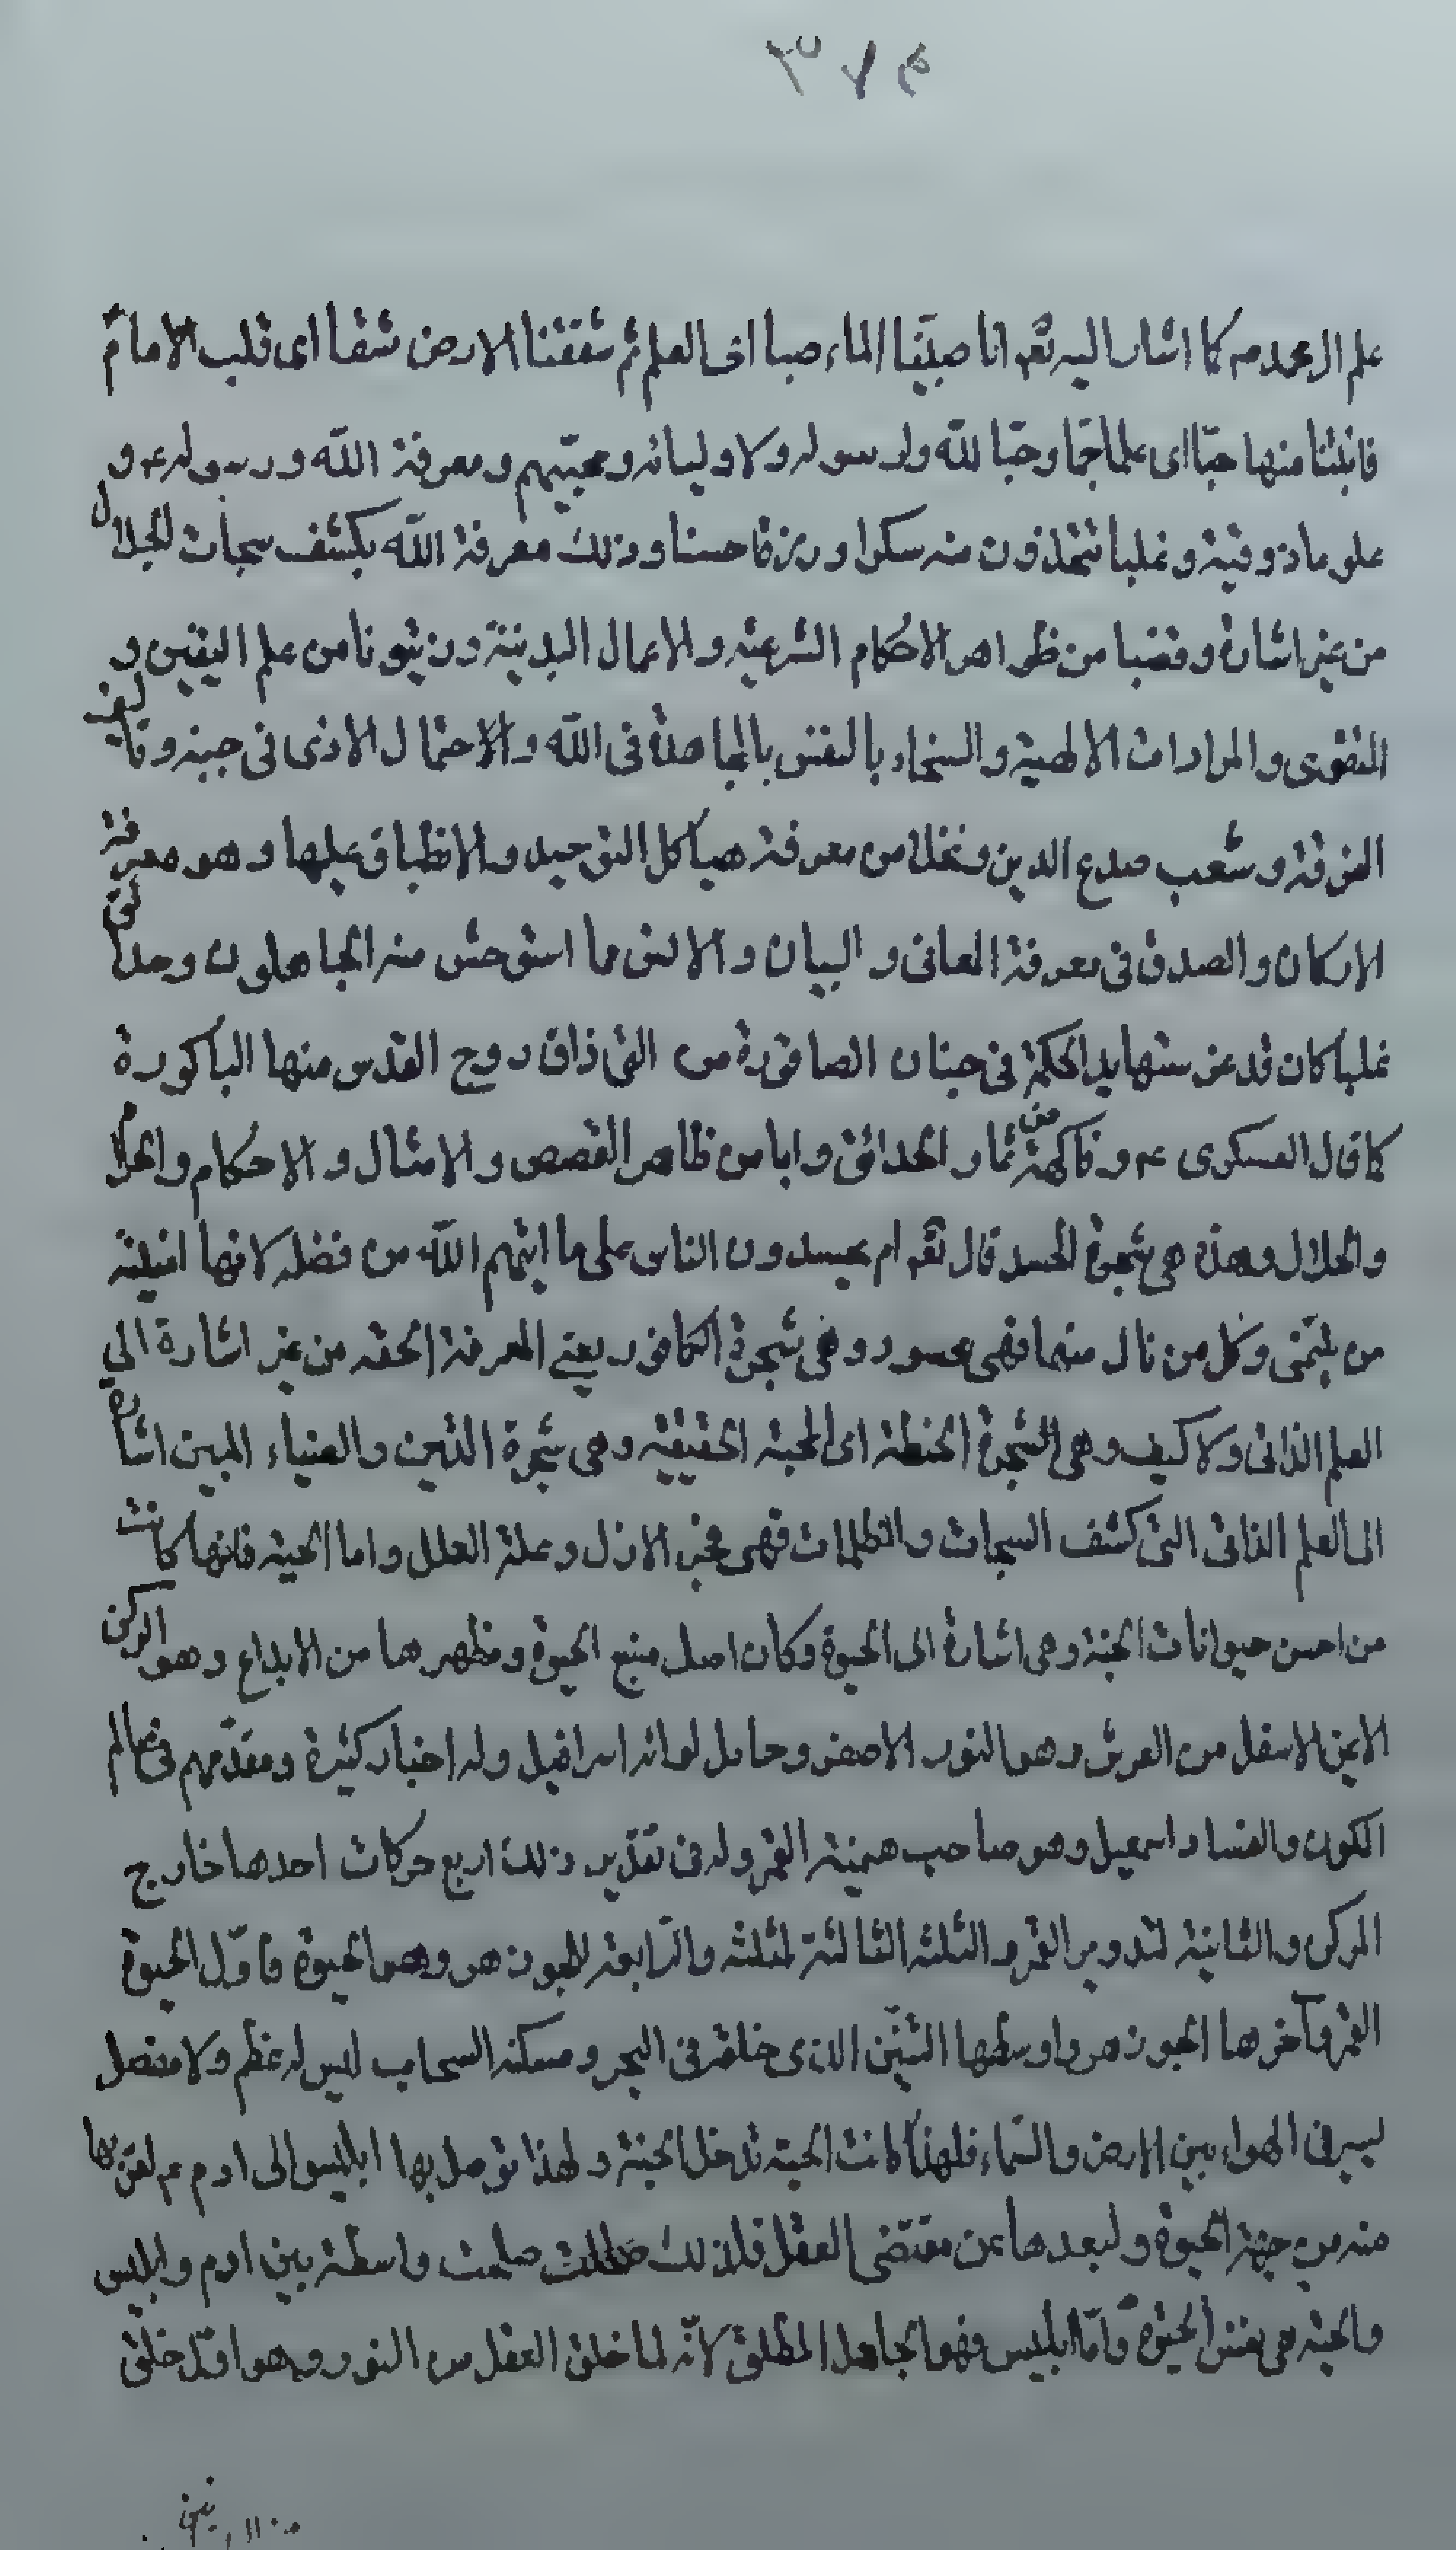 علم ال محمد ص كما اشار اليه تعم انا صببنا الماء صبا اى العلم ثم شققنا الارض شقا اى قلب الامام
فانبتنا منها حبا اى علما جما وحبا لله ولرسوله ولاوليائه ومحبيهم ومعرفة الله ورسوله ع و
علوما ذوقية وعنبا تتخذون منه سكرا ورزقا حسنا وذلك معرفة الله بكشف سبحات الجلال
من غير اشارة وقضبا من ظواهر الاحكام الشرعيه والاعمال البدنية وزيتونا من علم اليقين و
التقوى والمرادات الالهية والسخاء بالنفس بالمجاهدة فى الله والاحتمال الاذى فى جنبه وتاليف
الفرقة وشعب صدع الدين ونخلا من معرفة هياكل التوحيد والانطباق عليها وهو معرفة
الاركان والصدق فى معرفة المعانى و البيان والانس ما استوحش منه الجاهلون وحدائق
غلبا كان قد غرستها يد الحكمة فى جنان الصاقورة من التى ذاق روح القدس منها الباكورة
كما قال العسكرى ع وفاكهة من ثمار الحدائق وابا من ظاهر القصص والامثال والاحكام والحرام
والحلال وهذه هى شجرة الحسد قال تعم ام يحسدون الناس على ما اتيهم الله من فضله لانها
من يتمنى وكل من نال منها فهى محسود وهى شجرة الكافور يعنى المعرفة الحقه من غير اشارة الى
العلم الذاتى ولا كيف وهى الشجرة الحنطة اى المحبة الحقيقيه وهى شجرة التين والضياء المبين اشارة
الى العلم الذاتى التى كشف السبحات والظلمات فهى الازل وعلة العلل واما الحية فانها كانت
من احسن حيوانات الجنة وهى اشارة الى الحيوة وكان اصل منبع الحيوة ومظهرها من الابداع وهو الركن
الايمن الاسفل من العرش وهو النور الاصفر وحامل لوائه اسرافيل وله اخبار كثيرة ومقدمهم فى عالم
الكون والفساد اسمعيل وهو صاحب القمر وله فى تقدير ذلك اربع حركات احدها خارج
المركز والثانية لتدوير القمر و الثلثه الثالثة لمثلثه والرابعة للجوزهر وهو الحيوة فاول الحيوة
القمر وآخرها الجوزهر واوسطها التنين الذى خلقه فى البحر ومسكنه السحاب ليس له عظم ولا مفصل
يسير فى الهواء بين الارض والسماء فلهذا كانت الحية تدخل الجنة ولهذا توصل بها ابليس الى ادم ع لقربها
منه من جهة الحيوة ولبعدها عن مقتضى العقل فلذلك صلحت واسطة بين ادم وابليس
والحية هى نفس الحيوة واما ابليس فهو الجاهل المطلق لانه لما خلق العقل من النور وهو اول خلق